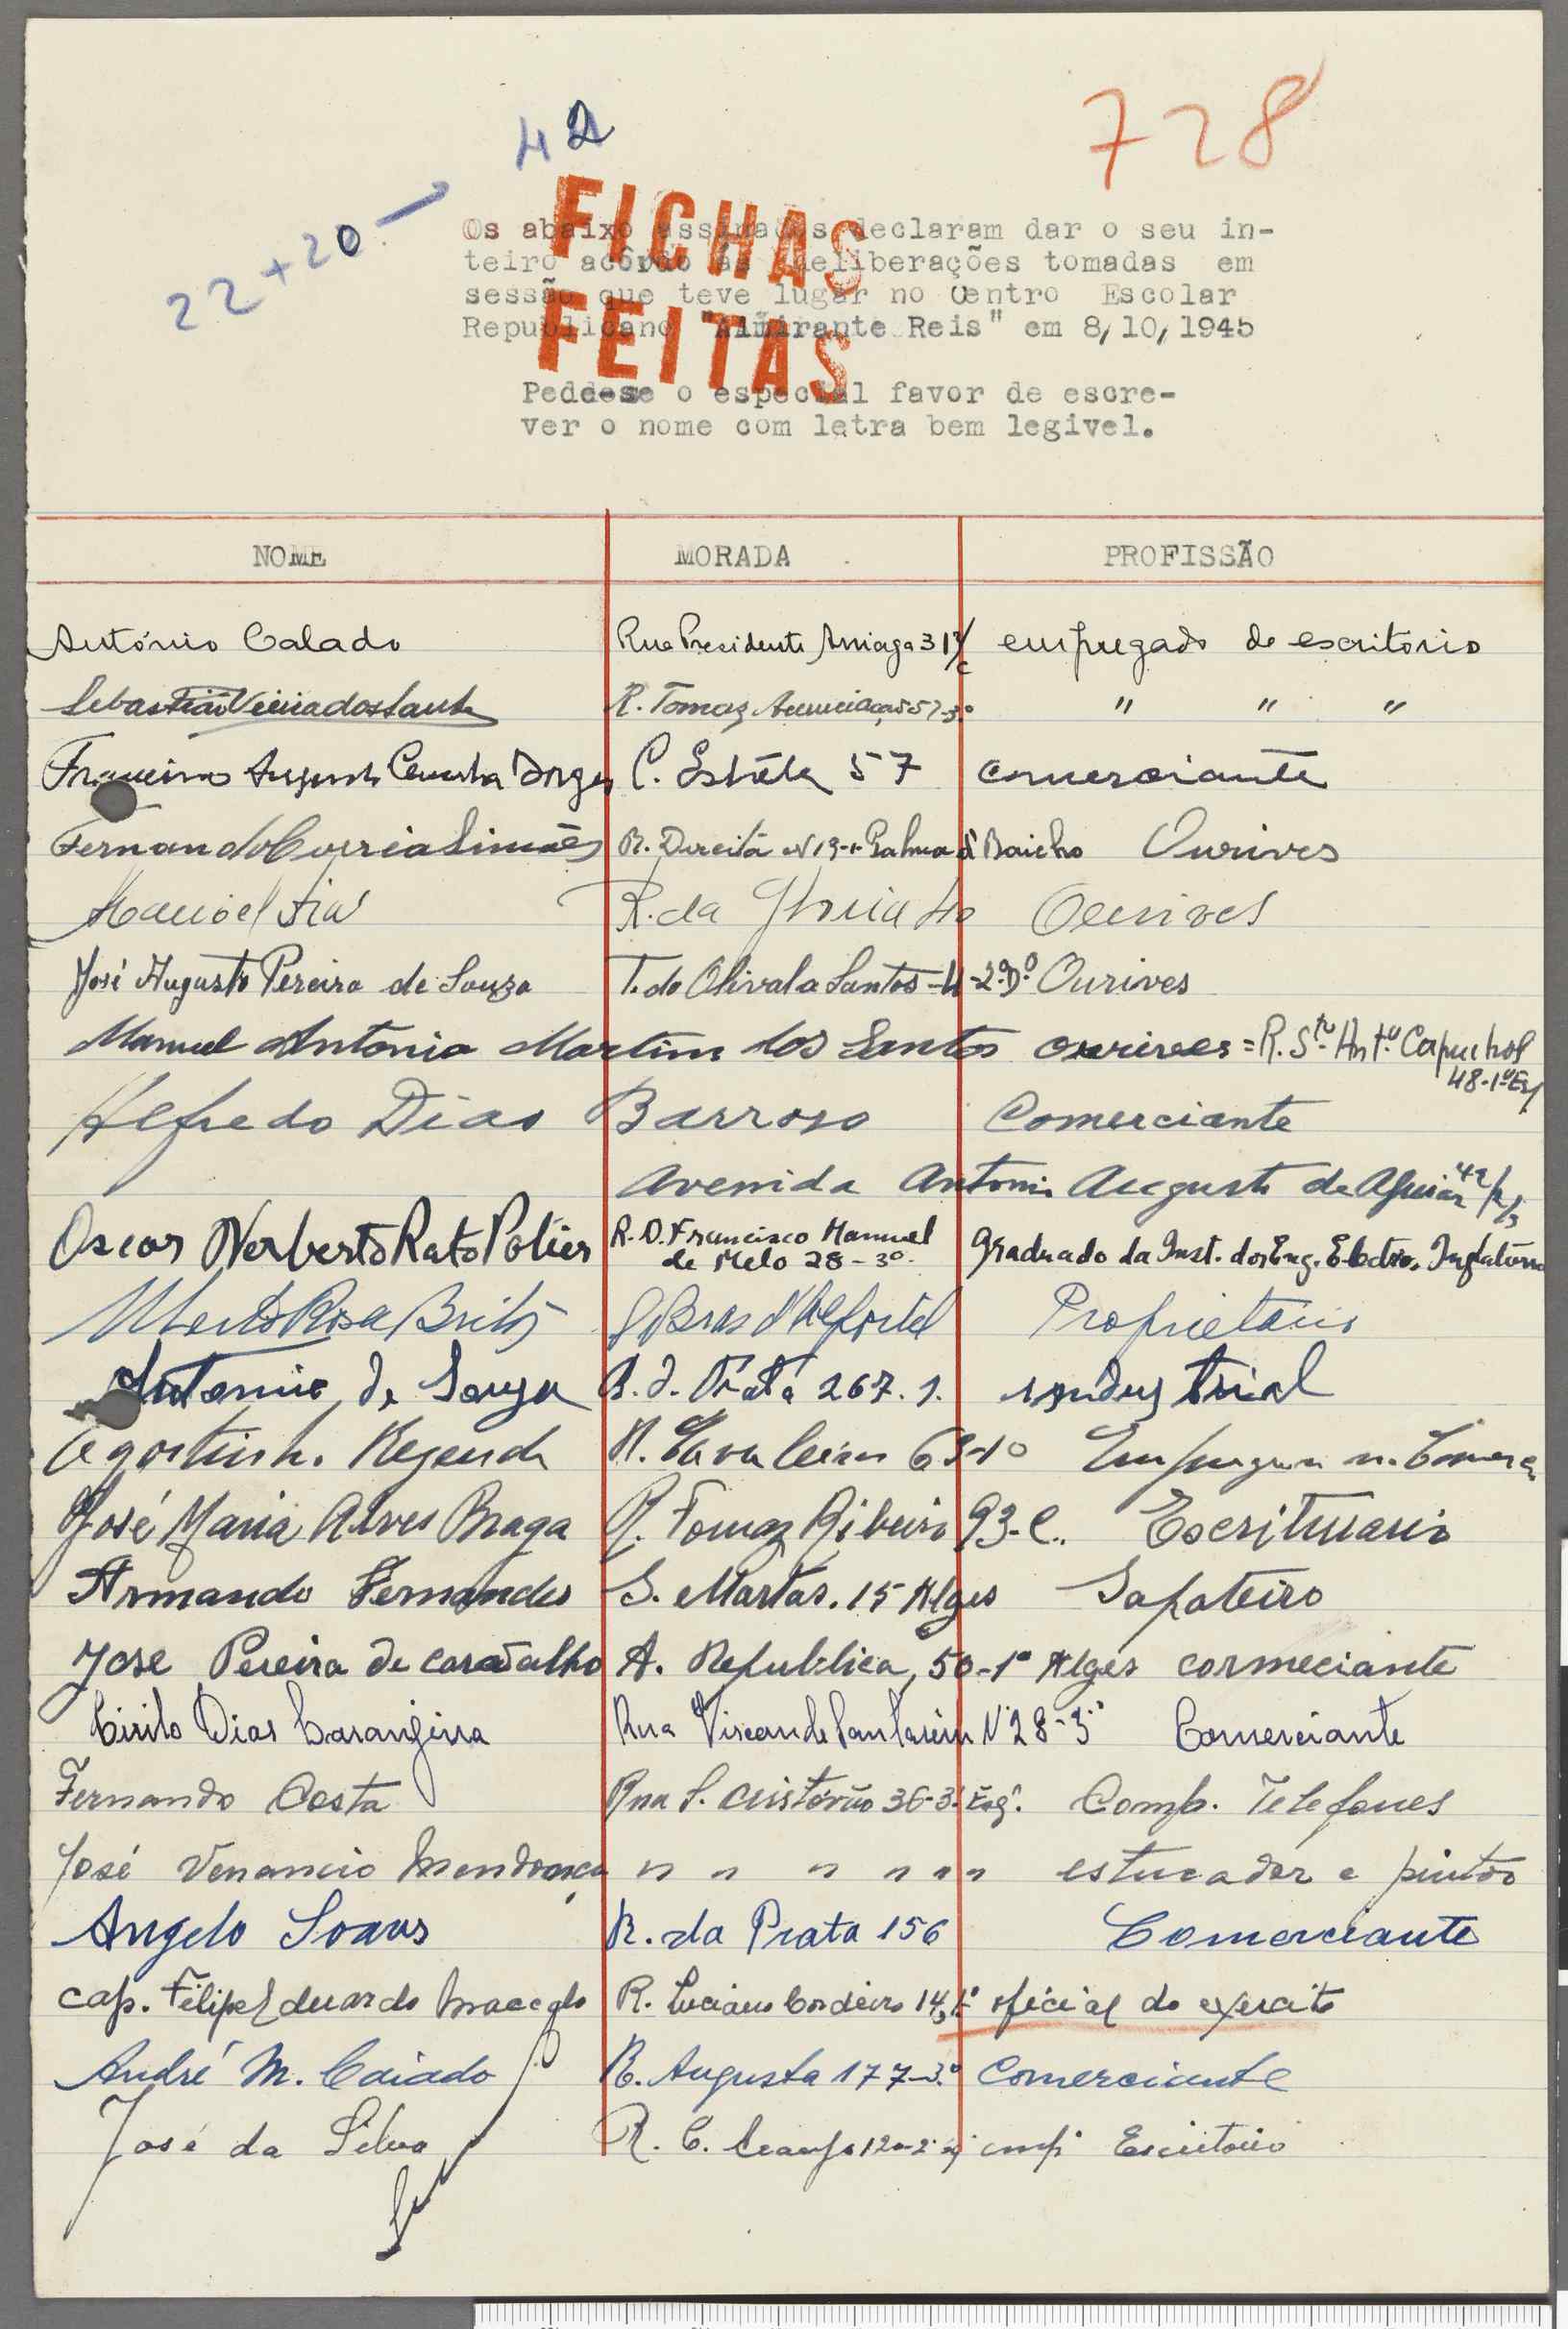 42
728
22+20.
FICHAS
FEITAS
Os abaixo assinados declaram dar o seu in-
teiro acôrdo ás deliberações tomadas em
sessão que teve lugar no Centro Escolar
Republicano "Almirante Reis" em 8/10/1945
Pedde-se o especial favor de escre-
ver o nome com letra bem legivel.
NOME MORADA PROFISSÃO
António Calado Rua Presidente Arriaga 31 r/c empregado de escritorio
Sebastião Vieira dos Santos R. Tomaz Anunciação 57-3º " " "
Augusto Cunha Borges C. Estrêla 57 comerciante
Fernando Correia Simões R. Direita Nº 19-1º Palma d Baicho Ourives
Manoel Dias R. da Gloria 40 Ourives
José Augusto Pereira de Souza T. do Olival a Santos-4-2º Dº Ourives
Manuel Antonio Martins dos Santos ourives = R. Stº Antº Capuchos
48-1º Esq
Alfredo Dias Barroso Comerciante
Avenida Antonio Augusto de Aguiar 42
Oscar Norberto Rato Potier R. D. Francisco Manuel
de Melo 28-3º. Graduado da Inst. dos Eng. Electro. Inglaterra
Rosa Brito S. Bras d'Alportel Proprietário
Antonio de Souza R. d. Prata 267.1. industrial
Agostinho Rezende R. Cavaleiros 63-1º
José Maria Alves Braga R. Tomaz Ribeiro 93-C. Escriturario
Armando Fernandes S. Martas. 15 Alges Sapateiro
Jose Pereira de caravalho A. Republica, 50-1º Alges cormeciante
Cirilo Dias Laranjeira Rua Visconde Santarem Nº 28-3º Comerciante
Fernando Costa Rua S. Cristóvão 36-3º Esqº. Comp. Telefones
José Venancio Mendonça " " " " " " estucador e pintor
Angelo Soares R. da Prata 156 Comerciante
cap. Filipe Eduardo Macedo R. Luciano Cordeiro 14, 1º oficial do exercito
André M. Caiado R. Augusta 177-3º Comerciante
José da Silva R. C. 120-2º empº Escritorio